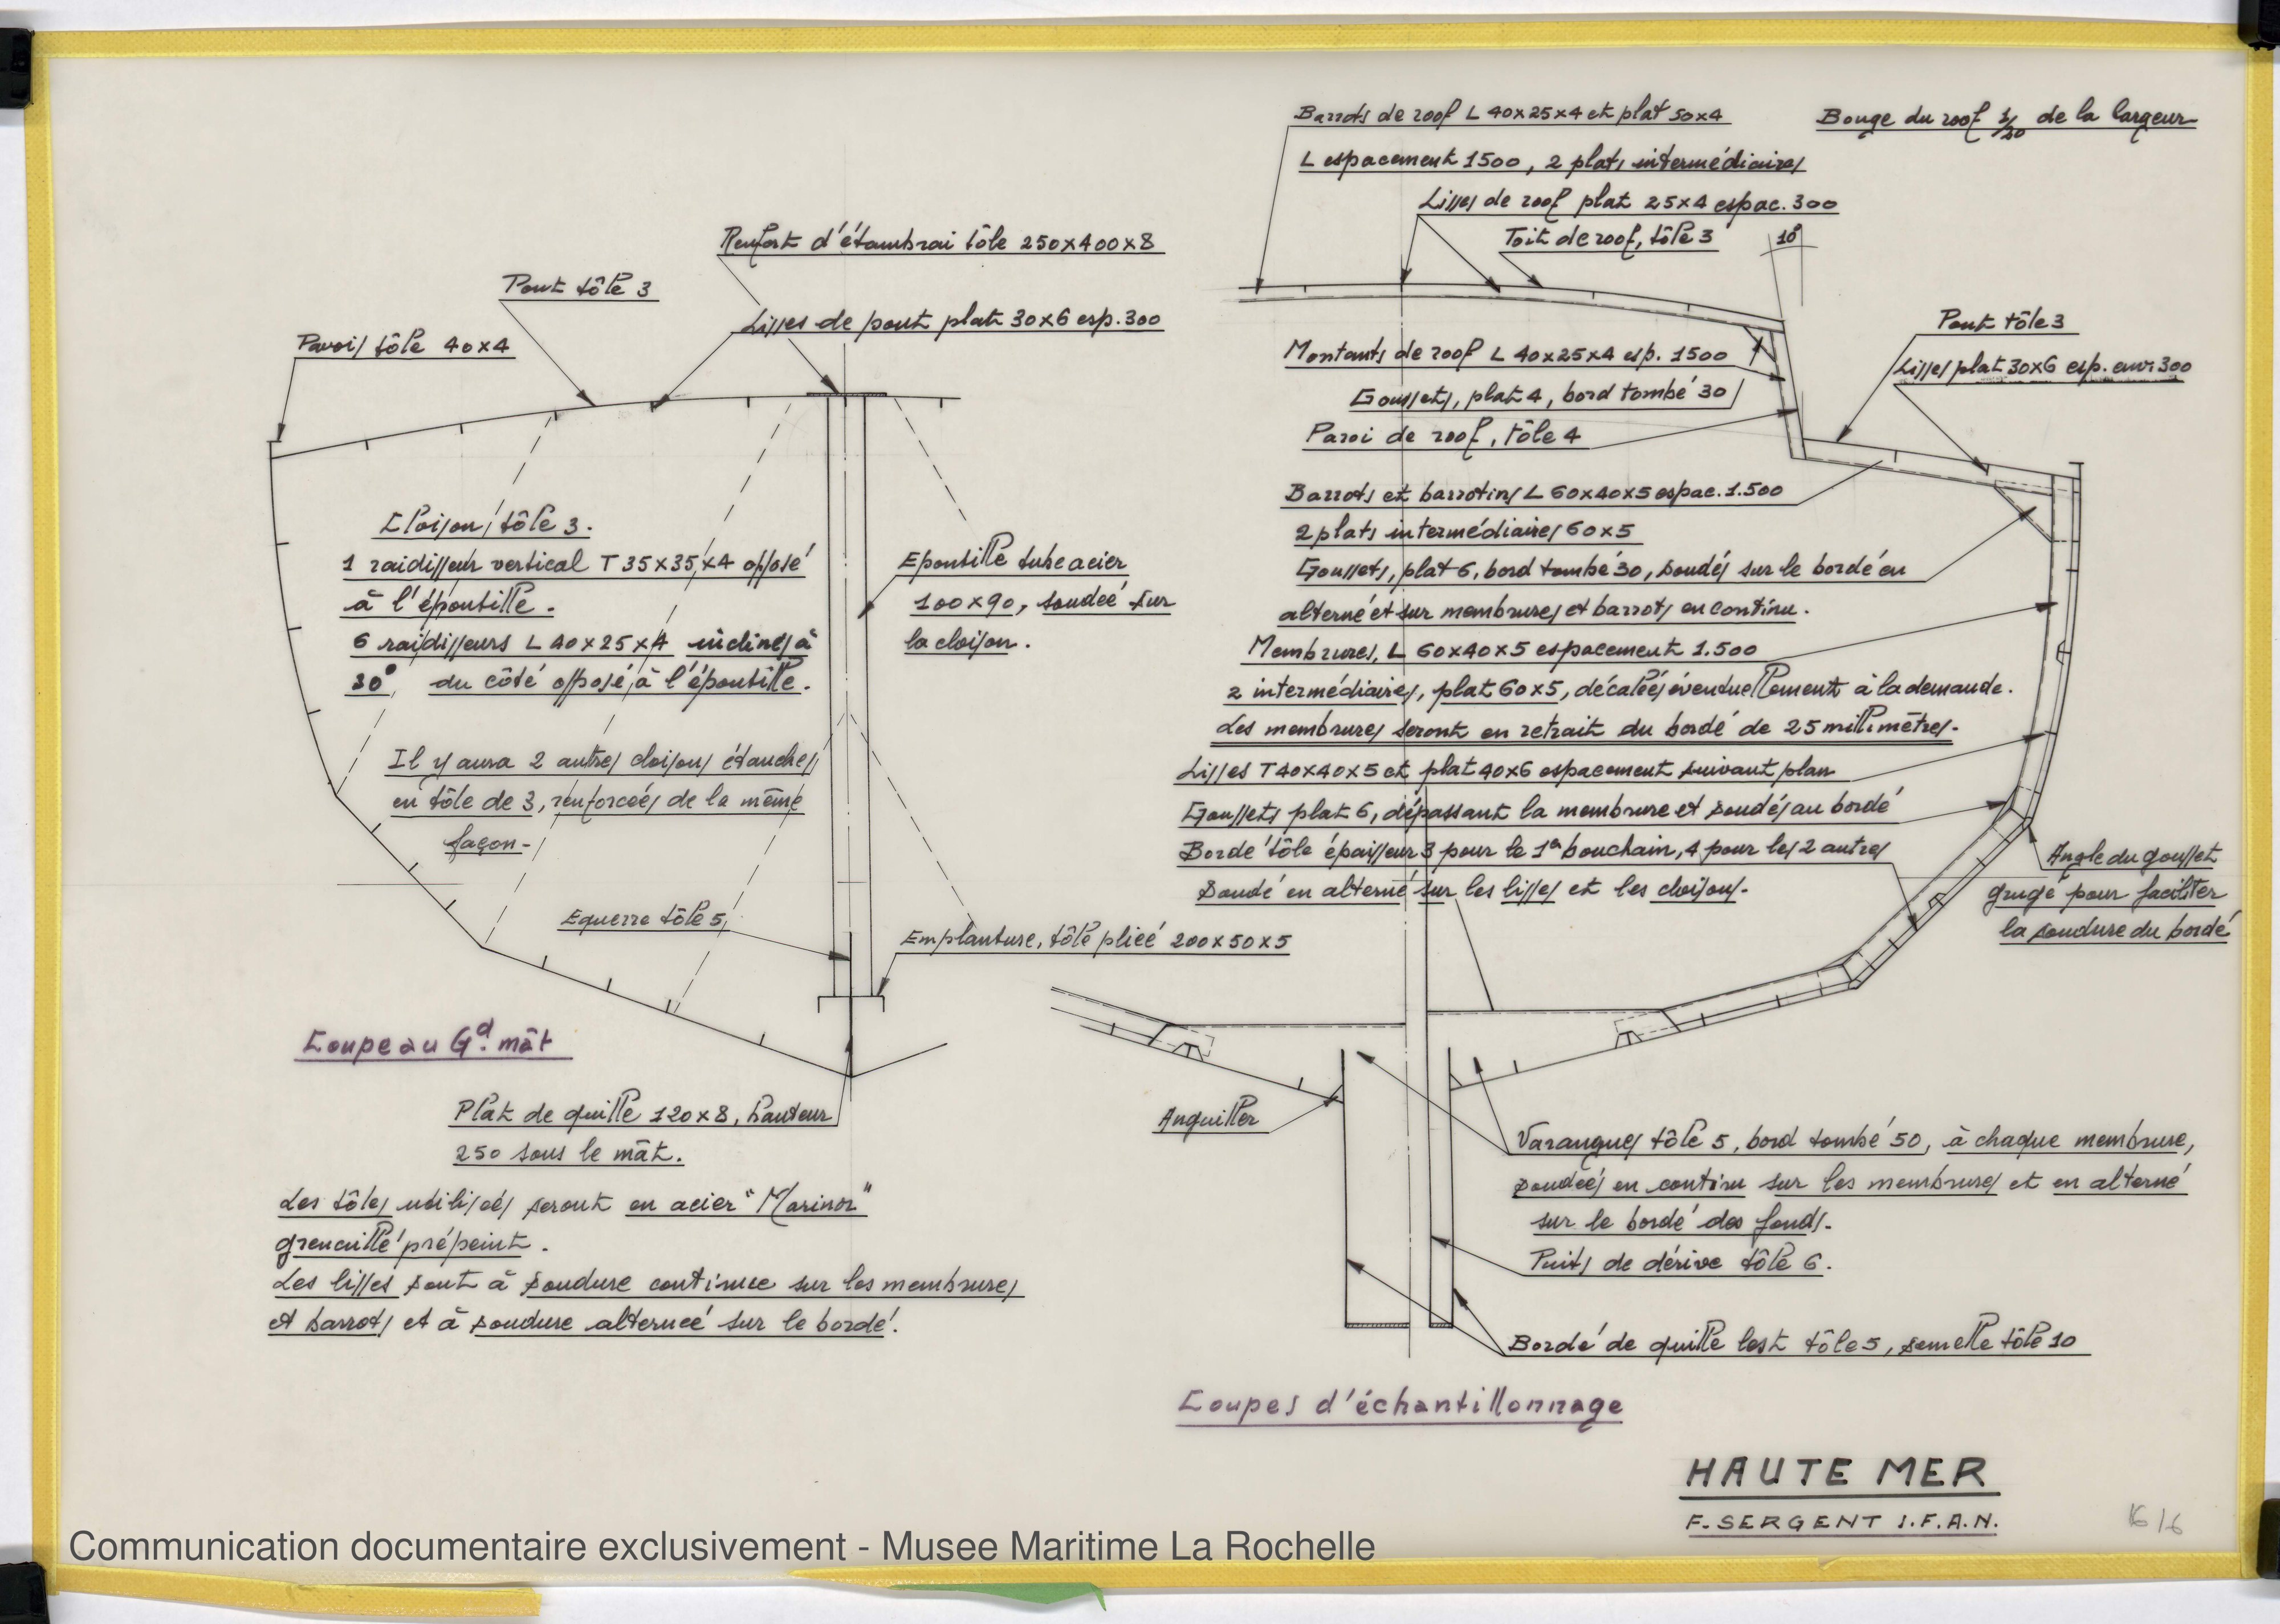 Renfort d'étambrai tôle 250x400x8
Pont tôle 3
Lisses de pont plat 30x6 esp. 300
Pavois tôle 40x4
Cloison tôle 3.
1 raidisseur vertical T 35x35x4 opposé
à l'épontille.
6 raidisseurs L 40x25x4 inclinés à
30° du côté opposé à l'épontille.
Il y aura 2 autres cloisons étanches
en tôle de 3, renforcées de la même
façon-
Epontille tube acier
100x90, soudée sur
la cloison.
Equerre tôle 5
Emplanture, tôle pliée 200x50x5
Coupe au Gd. mât
Plat de quille 120x8, hauteur
250 sous le mât.
Les tôles utilisées seront en acier "Marinor"
grenaillé prépeint.
Les lisses sont à soudure continue sur les membrures
et barrots et à soudure alternée sur le bordé.
Barrots de roof L 40x25x4 et plat 50x4
L espacement 1500, 2 plats intermédiaires
Bouge du roof de la largeur
Lisses de roof plat 25x4 espac. 300
Toit de roof, tôle 3
10°
Montants de roof L 40x25x4 esp. 1500
Goussets, plat 4, bord tombé 30
Paroi de roof, tôle 4
Pont tôle 3
Lisses plat 30x6 esp. env. 300
Barrots et barrotins L 60x40x5 espac. 1.500
2 plats intermédiaires 60x5
Goussets, plat 6, bord tombé 30, soudés sur le bordé en
alterné et sur membrures et barrots en continu.
Membrures, L 60x40x5 espacement 1.500
2 intermédiaires, plat 60x5, décalées éventuellement à la demande.
Les membrures seront en retrait du bordé de 25 millimètres-
Lisses T 40x40x5 et plat 40x6 espacement suivant plan
Goussets plat 6, dépassant la membrure et soudés au bordé
Bordé tôle épaisseur 3 pour le 1er bouchain, 4 pour les 2 autres
Soudé en alterné sur les lisses et les cloisons-
Angle du gousset
grugé pour faciliter
la soudure du bordé
Anguiller
Varangues tôle 5, bord tombé 50, à chaque membrure,
soudées en continu sur les membrures et en alterné
sur le bordé des fonds-
Puits de dérive tôle 6.
Bordé de quille lest tôle 5, semelle tôle 10
Coupes d'échantillonnage
HAUTE MER
F. SERGENT I.F.A.N.
Communication documentaire exclusivement - Musee Maritime La Rochelle